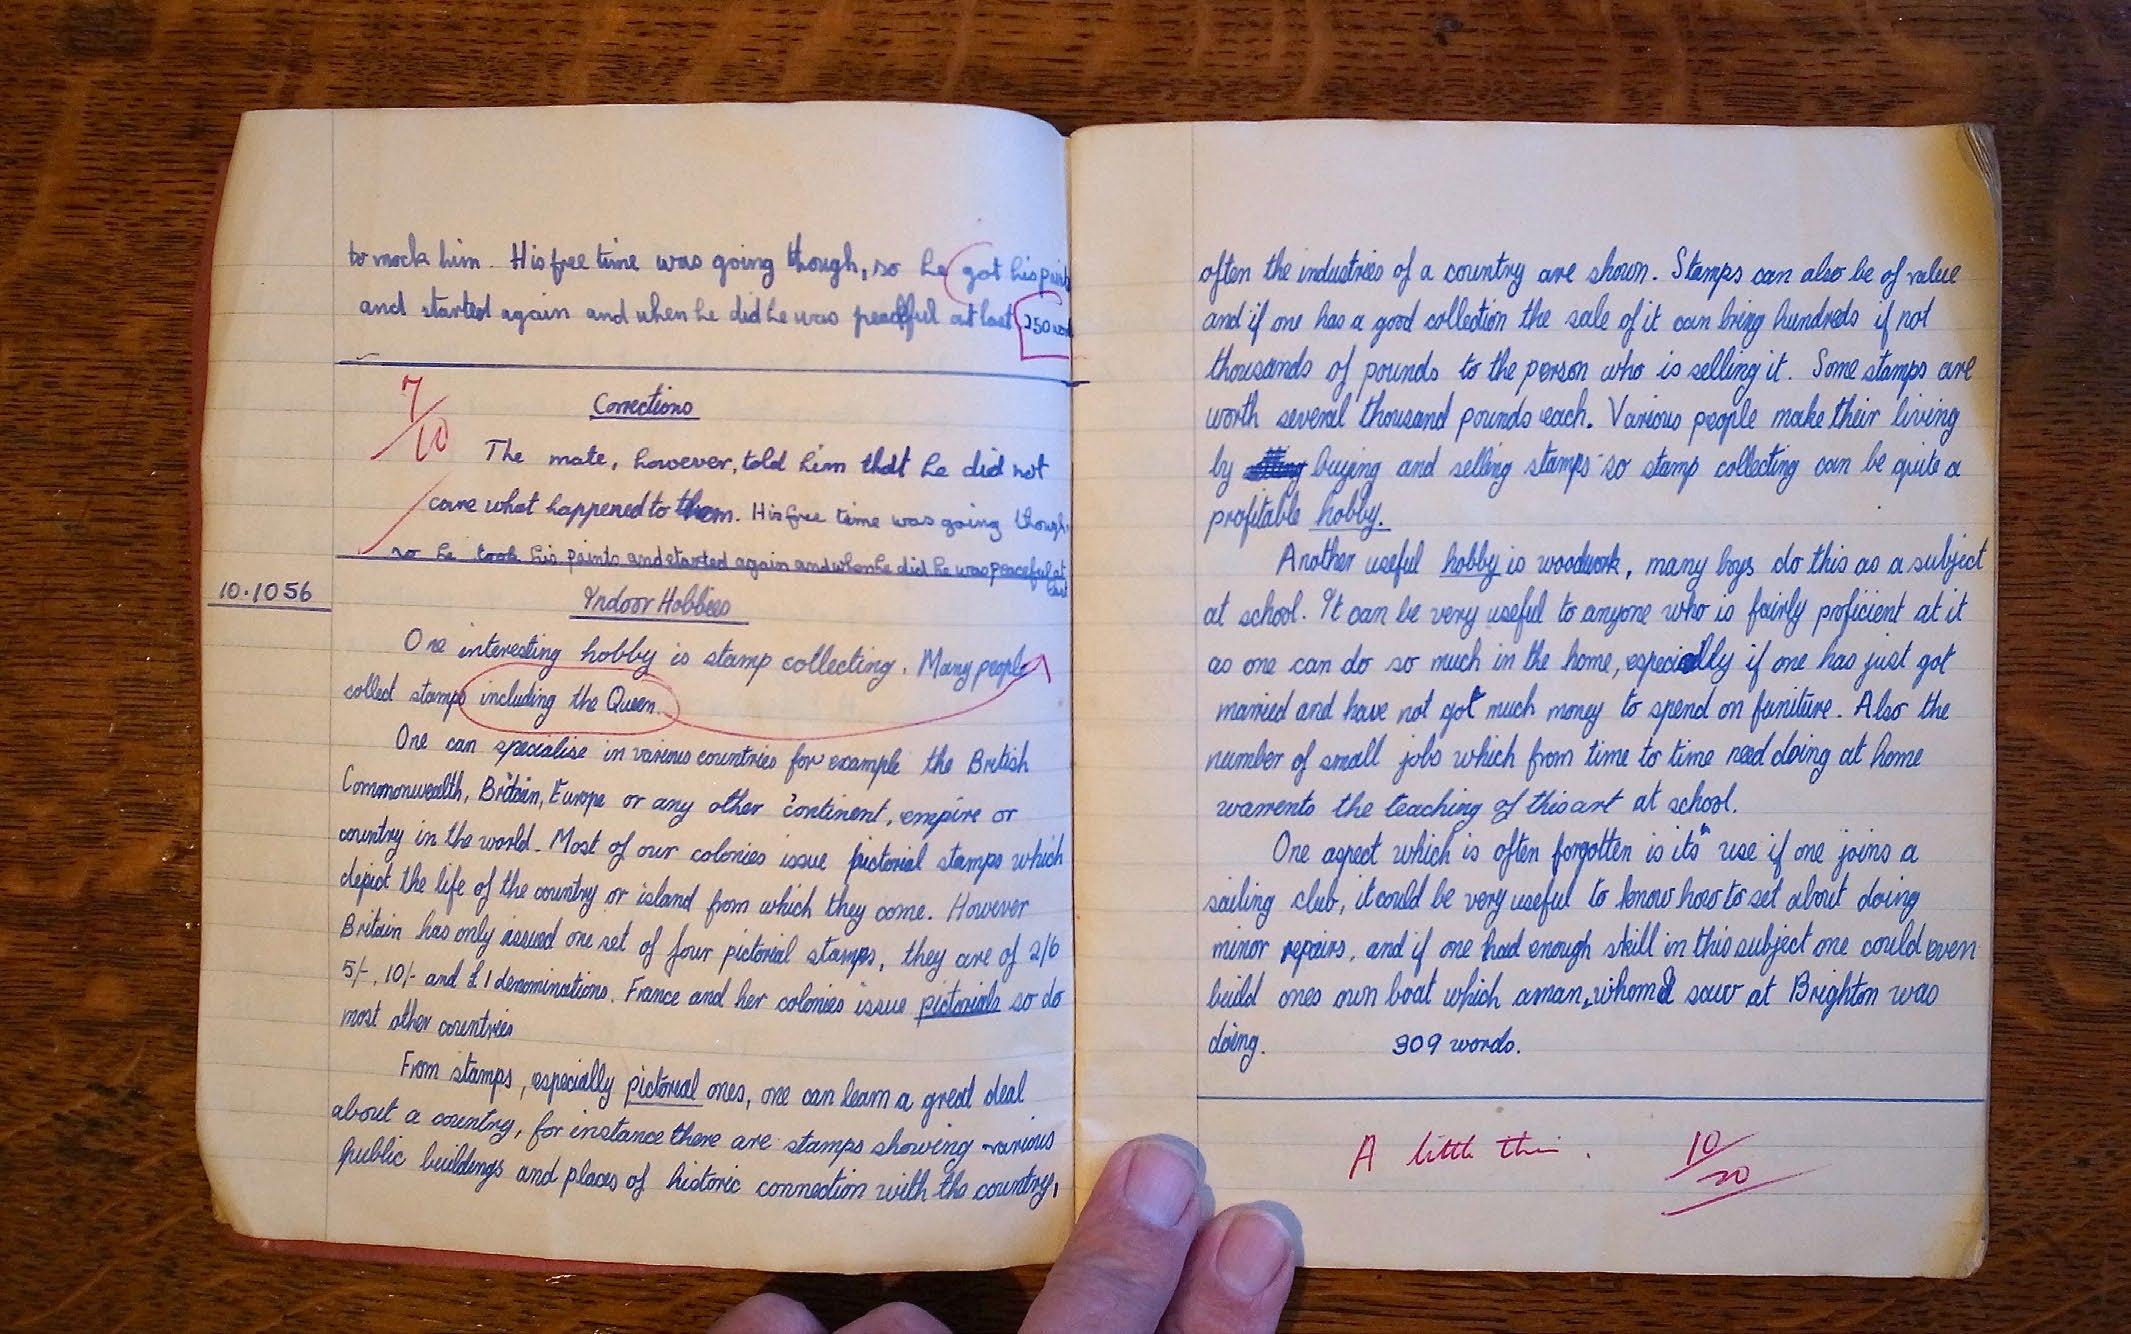 to mock him. His free time was going though, so he got his paints
and started again and when he did he was peaceful at last 250 words
7/10
Corrections
The mate, however, told him that he did not
care what happened to them. His free time was going though
so he took his paints and started again and when he did he was peaceful at
last
10.1056
Indoor Hobbies
One interesting hobby is stamp collecting. Many people
collect stamps including the Queen.
One can specialise in various countries for example the British
Commonwealth, Britain, Europe or any other continent, empire or
country in the world. Most of our colonies issue pictorial stamps which
depict the life of the country or island from which they come. However
Britain has only issued one set of four pictorial stamps, they are of 2/6
5/-, 10/- and £1 denominations. France and her colonies issue pictorials so do
most other countries
From stamps, especially pictorial ones, one can learn a great deal
about a country, for instance there are stamps showing various
public buildings and places of historic connection with the country,
often the industries of a country are shown. Stamps can also be of value
and if one has a good collection the sale of it can bring hundreds if not
thousands of pounds to the person who is selling it. Some stamps are
worth several thousand pounds each. Various people make their living
by buying and selling stamps so stamp collecting can be quite a
profitable hobby.
Another useful hobby is woodwork, many boys do this as a subject
at school. It can be very useful to anyone who is fairly proficient at it
as one can do so much in the home, especially if one has just got
married and have not got much money to spend on funiture. Also the
number of small jobs which from time to time need doing at home
warrents the teaching of this art at school.
One aspect which is often forgotten is it's use if one joins a
sailing club, it could be very useful to know how to set about doing
minor repairs, and if one had enough skill in this subject one could even
build ones own boat which a man, whom I saw at Brighton was
doing. 309 words.
A little thin. 10/20